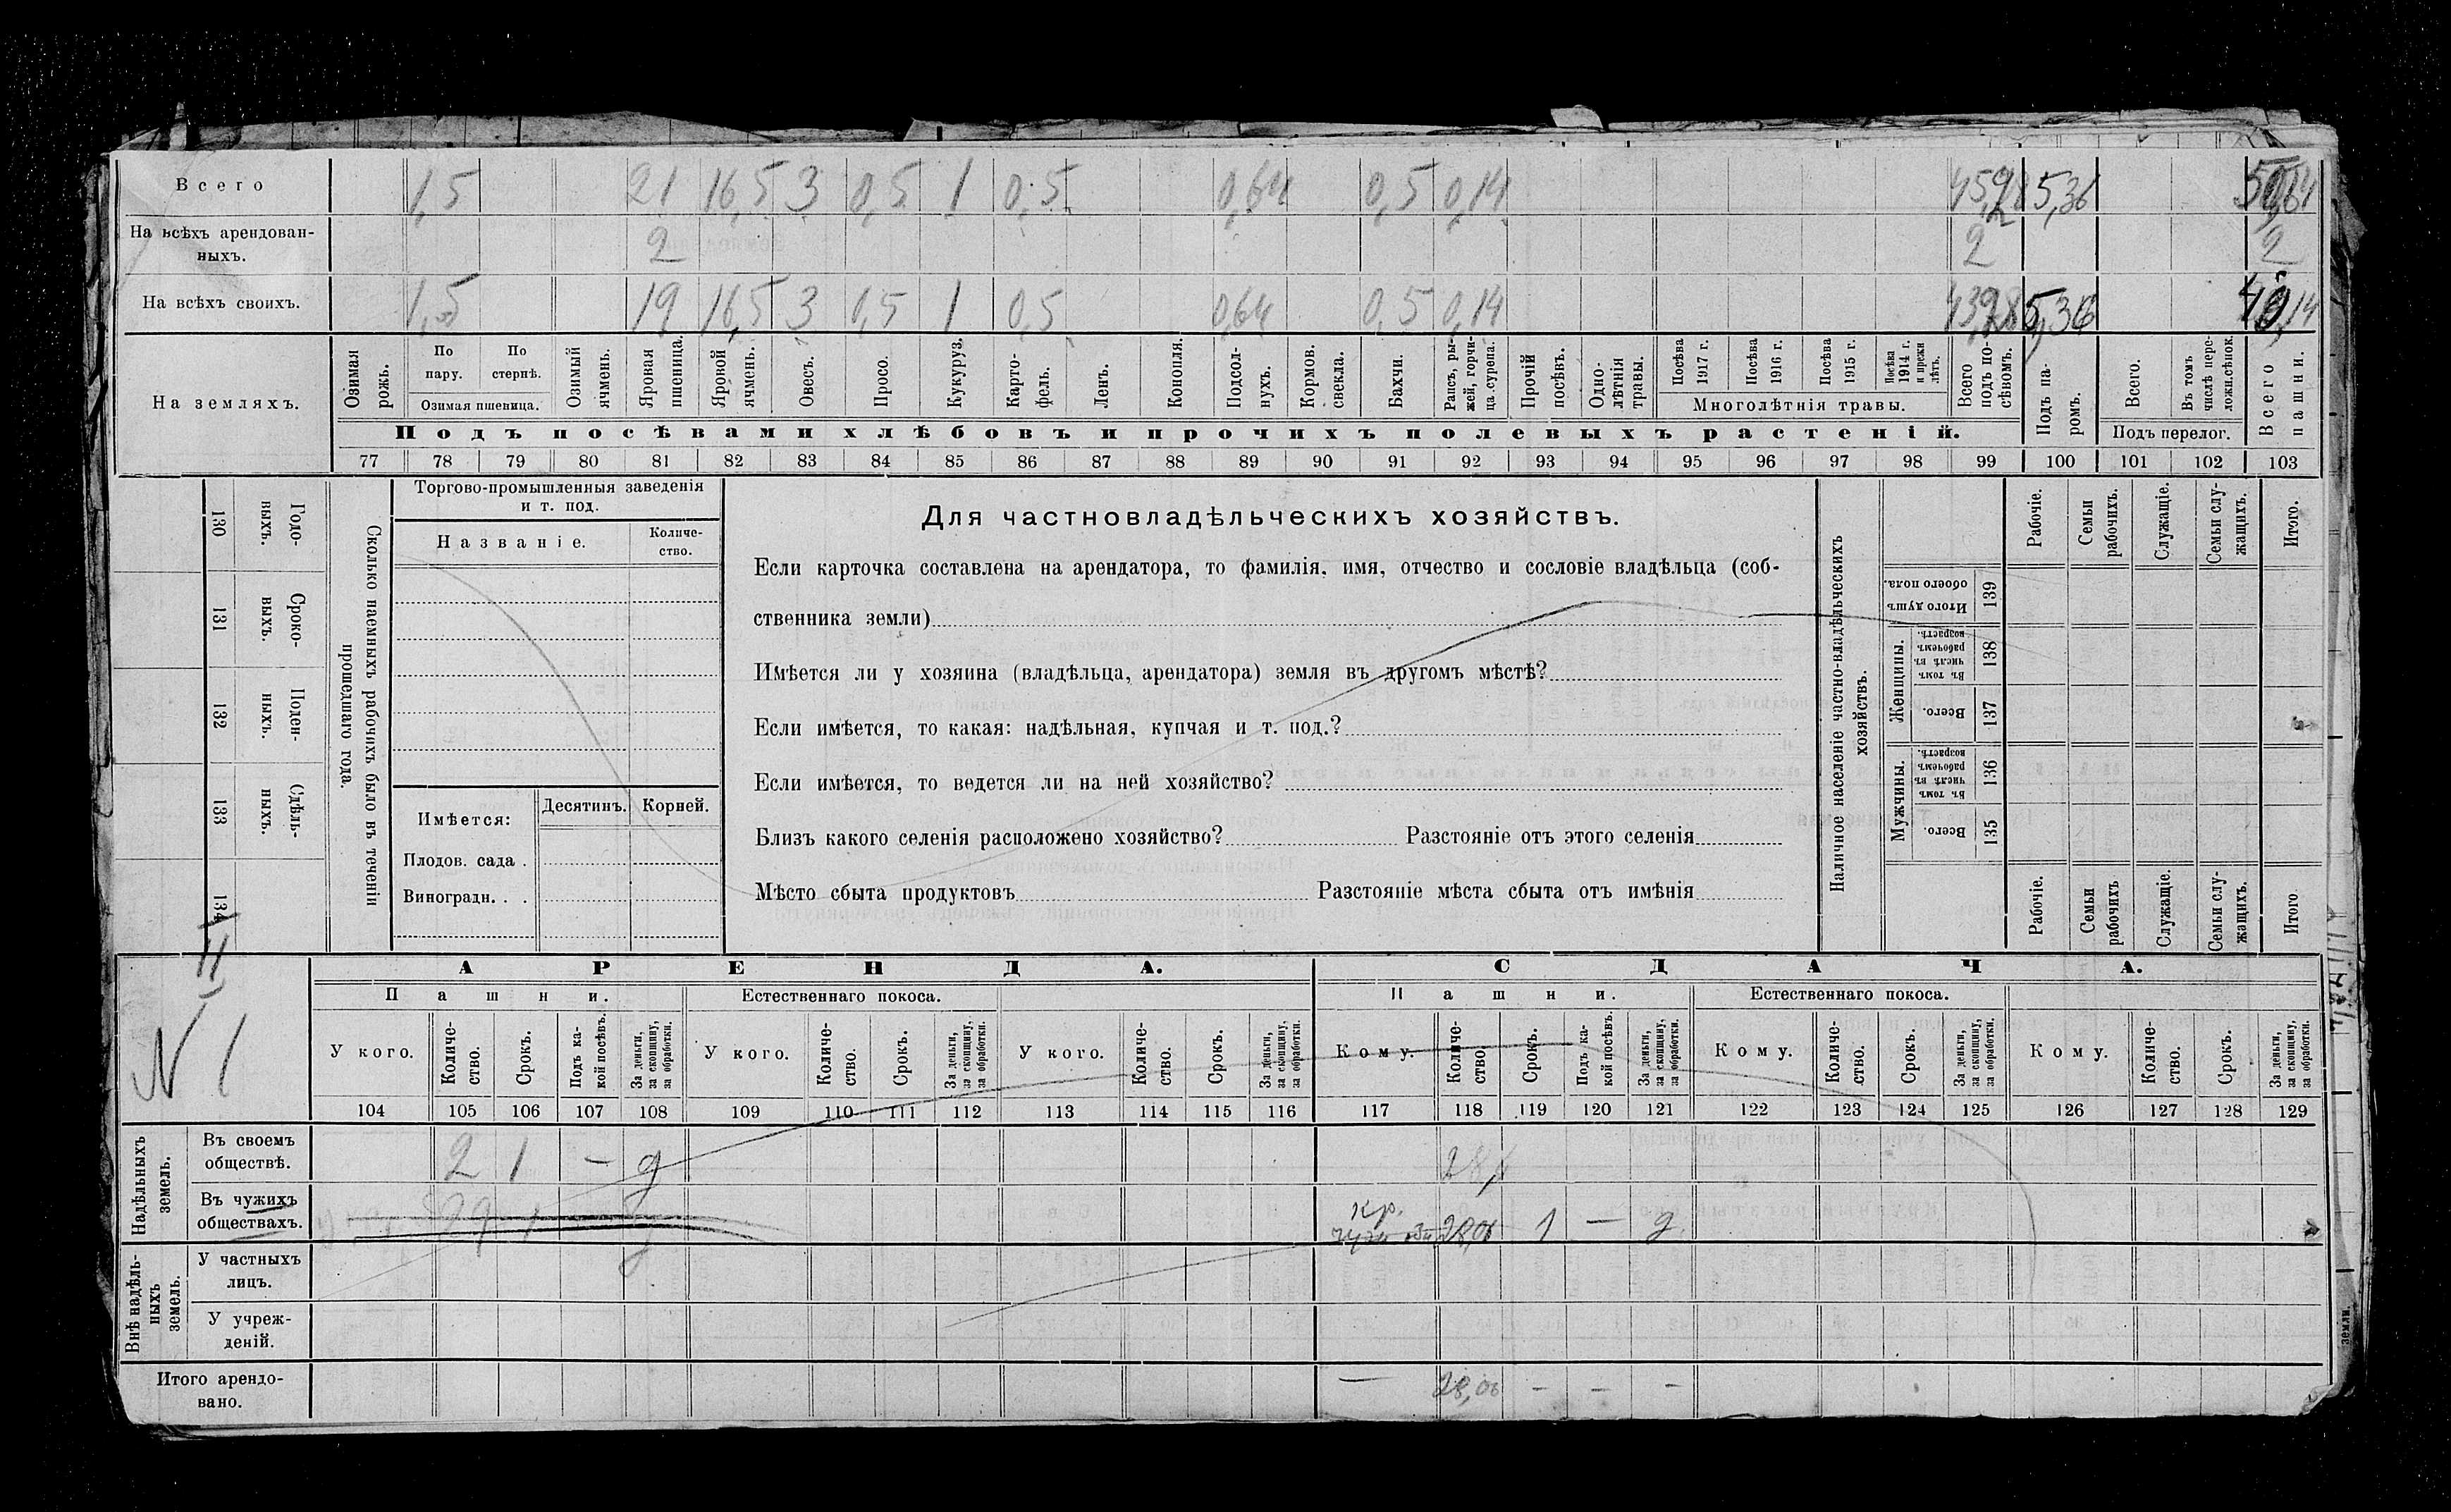 Всего 1,5 21 16,5 3 0,5 1 0,5 0,64 0,5 0,14 5,36
На всѣхъ арендован-
ныхъ. 2 2 2
На всѣхъ своихъ. 1,5 19 16,5 3 0,5 1 0,5 0,64 0,5 0,14 5,36
На земляхъ.
Озимая рожь.
По пару.
По стернѣ.
Озимая пшеница.
Озимый ячмень.
Яровая пшеница.
Яровой ячмень.
Овесъ.
Просо.
Кукуруз.
Карто-
фель.
Ленъ.
Конопля.
Подсол-
нухъ.
Кормов.
свекла.
Бахчи.
Рапсъ, ры-
жей, горчи-
ца, сурепа.
Прочій
посѣвъ.
Одно-
лѣтнія
травы.
Посѣва
1917 г.
Посѣва
1916 г.
Посѣва
1915 г.
Посѣва
1914 г.
и прежн
лѣтъ.
Многолѣтнія травы.
Всего
подъ по-
сѣвомъ.
Подъ па-
ромъ.
Всего.
Въ томъ
числѣ пере-
ложн.сѣнок.
Подъ перелог.
Всего
пашни.
Подъ посѣвами хлѣбовъ и прочихъ полевыхъ растеній.
77 78 79 80 81 82 83 84 85 86 87 88 89 90 91 92 93 94 95 96 97 98 99 100 101 102 103
130 Годо-
выхъ.
131 Сроко-
выхъ.
132 Поден-
ныхъ.
133 Сдѣль-
ныхъ.
134
Сколько наемныхъ рабочихъ было въ теченіи
прошедшаго года.
Торгово-промышленныя заведенія
и т. под.
Названіе.
Количе-
ство.
Имѣется:
Десятинъ. Корней.
Плодов. сада .
Виноградн. . .
Для частновладѣльческихъ хозяйствъ.
Если карточка составлена на арендатора, то фамилія, имя, отчество и сословіе владѣльца (соб-
ственника земли)
Имѣется ли у хозяина (владѣльца, арендатора) земля въ другомъ мѣстѣ?
Если имѣется, то какая: надѣльная, купчая и т. под.?
Если имѣется, то ведется ли на ней хозяйство?
Близъ какого селенія расположено хозяйство? Разстояніе отъ этого селенія
Мѣсто сбыта продуктовъ Разстояніе мѣста сбыта отъ имѣнія
Наличное населеніе частно-владѣльческихъ
хозяйствъ.
Рабочіе.
Семьи
рабочихъ.
Служащіе.
Семьи слу-
жащихъ.
Итого.
Итого душъ
обоего пола.
139
Женщины.
Въ томъ
числѣ въ
рабочемъ
возрастѣ.
138
Всего.
137
Мужчины.
Въ томъ
числѣ въ
рабочемъ
возрастѣ.
136
Всего.
135
Рабочіе.
Семьи
рабочихъ
Служащіе.
Семьи слу-
жащихъ.
Итого
II
N 1
АРЕНДА.
СДАЧА.
Пашни.
Естественнаго покоса.
Пашни.
Естественнаго покоса.
У кого.
Количе-
ство.
Срокъ.
Подъ ка-
кой посѣвъ.
За деньги,
за скопщину,
за обработки.
У кого.
Количе-
ство.
Срокъ.
За деньги,
за скопщину,
за обработки.
У кого.
Количе-
ство.
Срокъ.
За деньги,
за скопщину,
за обработки.
Кому.
Количе-
ство.
Срокъ.
Подъ ка-
кой посѣвъ.
За деньги,
за скопщину,
за обработки.
Кому.
Количе-
ство.
Срокъ.
За деньги,
за скопщину,
за обработки.
Кому.
Количе-
ство.
Срокъ.
За деньги,
за скопщину,
за обработки.
104 105 106 107 108 109 110 111 112 113 114 115 116 117 118 119 120 121 122 123 124 125 126 127 128 129
Надѣльныхъ
земель.
Въ своемъ
обществѣ. 2 1 — д
Въ чужихъ
обществахъ. кр. 1 — д.
Внѣ надѣль-
ныхъ
земель.
У частныхъ
лицъ.
У учреж-
деній.
Итого арендо-
вано. — 28,06 — — —
земли.